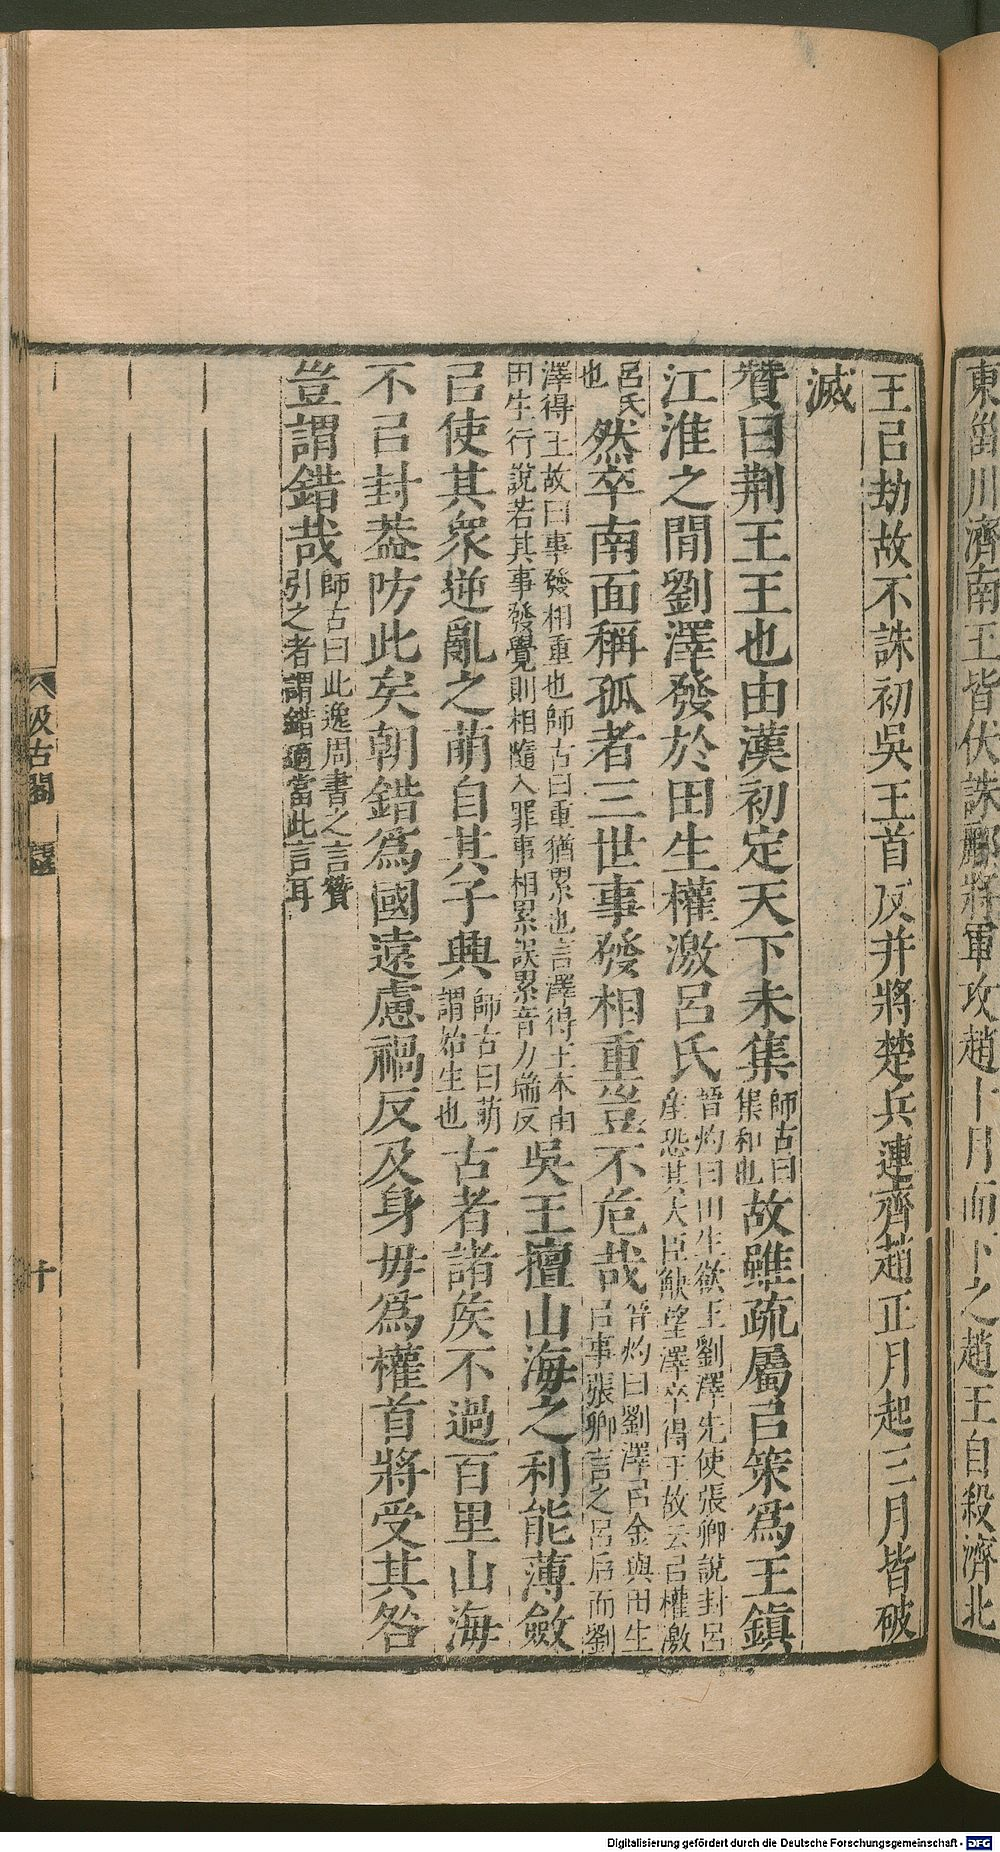 東甾川濟南王皆伏誅酈將軍攻趙十月而下之趙王自殺濟北
王㠯劫故不誅初吳王首反并將楚兵連齊趙正月起三月皆破
滅
贊曰荆王王也由漢初定天下未集師古曰集和也故雖疏屬㠯策爲王鎮
江淮之間劉澤發於田生權激呂氏晉灼曰田生欲王劉澤先使張卿說封呂產恐其大臣觖望澤卒得王故云㠯權激
呂氏也然卒南面稱孤者三世事發相重豈不危哉晉灼曰劉澤㠯金與田生㠯事張卿言之呂后而劉
澤得王故曰事發相重也師古曰重猶累也言澤得王本由田生行說若其事發覺則相隨入罪事相累誤累音力瑞反吳王擅山海之利能薄斂
㠯使其衆逆亂之萌自其子興師古曰萌謂始生也古者諸矦不過百里山海
不㠯封葢防此矣朝錯爲國遠慮禍反及身毋爲權首將受其咎
豈謂錯哉師古曰此逸周書之言贊引之者謂錯適當此言耳
汲古閣
十
Digitalisierung gefördert durch die Deutsche Forschungsgemeinschaft - DFG